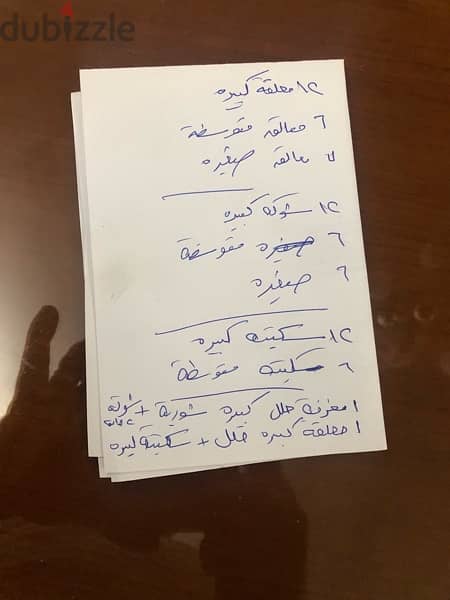 dubizzle
١٢ معلقة كبيره
٦ معالقه متوسطة
٧ معالقه صغيره
١٢ شوكه كبيره
٦ متوسطة
٦ صغيره
١٢ سكينه كبيره
٦ سكينه متوسطة
١ مغرفة حلل كبيره شوربة + شوكة
١ معلقة كبيره حلل + سكينة كبيره